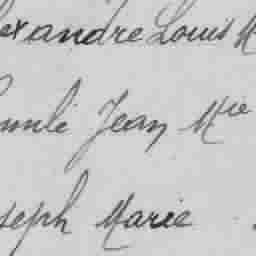 exandre Louis M
Jean Mie
seph Marie